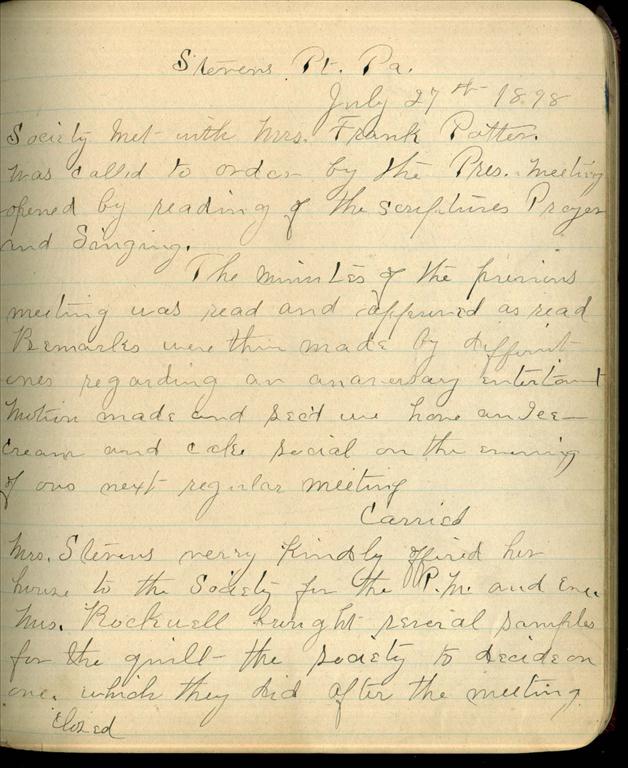 Stevens Pt. Pa.
July 27th 1898
Society met with Mrs. Frank Potter.
was called to order by the Pres. meeting
opened by reading of the scriptures Prayer
and Singing.
The minutes of the previous
meeting was read and approved as read
Remarks were then made by different
ones regarding an anaversary entertant
Motion made and sec'd we have an Ice-
cream and cake social on the evening
of our next regular meeting
Carried
Mrs. Stevens verry kindly offired her
house to the Society for the P.M. and Eve.
Mrs. Rockwell brought several samples
for the quilt the society to decide on
one. which they did after the meeting
closed